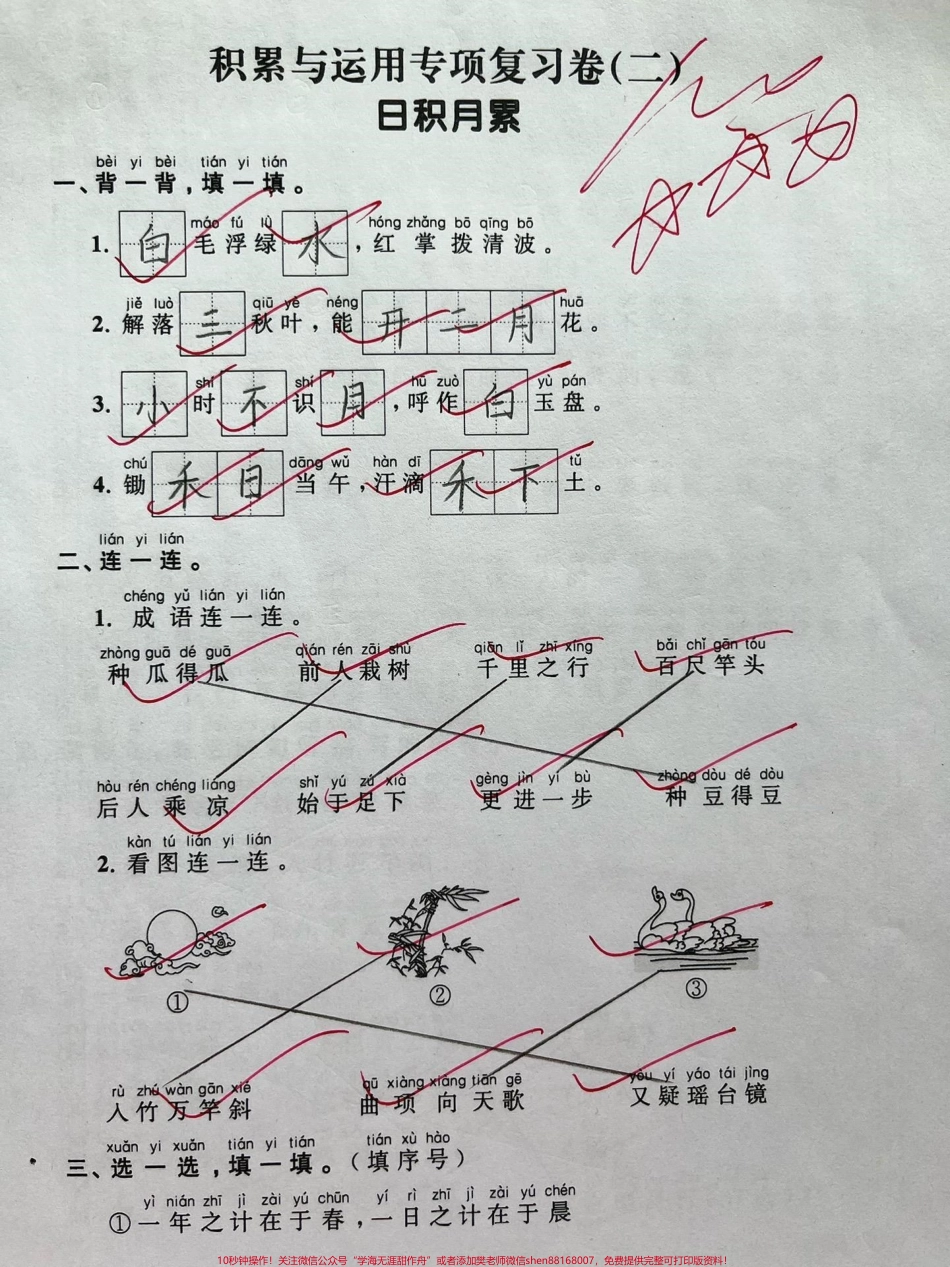 积累与运用专项复习卷(二)
日积月累
bèi yi bèi tián yi tián
一、背一背,填一填。
máo fú lǜ hóng zhǎng bō qīng bō
1. 白毛浮绿水,红掌拨清波。
jiě luò qiū yè néng huā
2. 解落三秋叶,能开二月花。
shí shí hū zuò yù pán
3. 小时不识月,呼作白玉盘。
chú dāng wǔ hàn dī tǔ
4. 锄禾日当午,汗滴禾下土。
lián yi lián
二、连一连。
chéng yǔ lián yi lián
1. 成语连一连。
zhòng guā dé guā qián rén zāi shù qiān lǐ zhī xíng bǎi chǐ gān tóu
种瓜得瓜 前人栽树 千里之行 百尺竿头
hòu rén chéng liáng shǐ yú zú xià gèng jìn yí bù zhòng dòu dé dòu
后人乘凉 始于足下 更进一步 种豆得豆
kàn tú lián yi lián
2. 看图连一连。
① ② ③
rù zhú wàn gān xié qū xiàng xiàng tiān gē yòu yí yáo tái jìng
入竹万竿斜 曲项向天歌 又疑瑶台镜
xuǎn yi xuǎn tián yi tián tián xù hào
三、选一选,填一填。(填序号)
yì nián zhī jì zài yú chūn yí rì zhī jì zài yú chén
①一年之计在于春,一日之计在于晨
10秒钟操作!关注微信公众号“学海无涯甜作舟”或者添加樊老师微信shen88168007,免费提供完整可打印版资料!